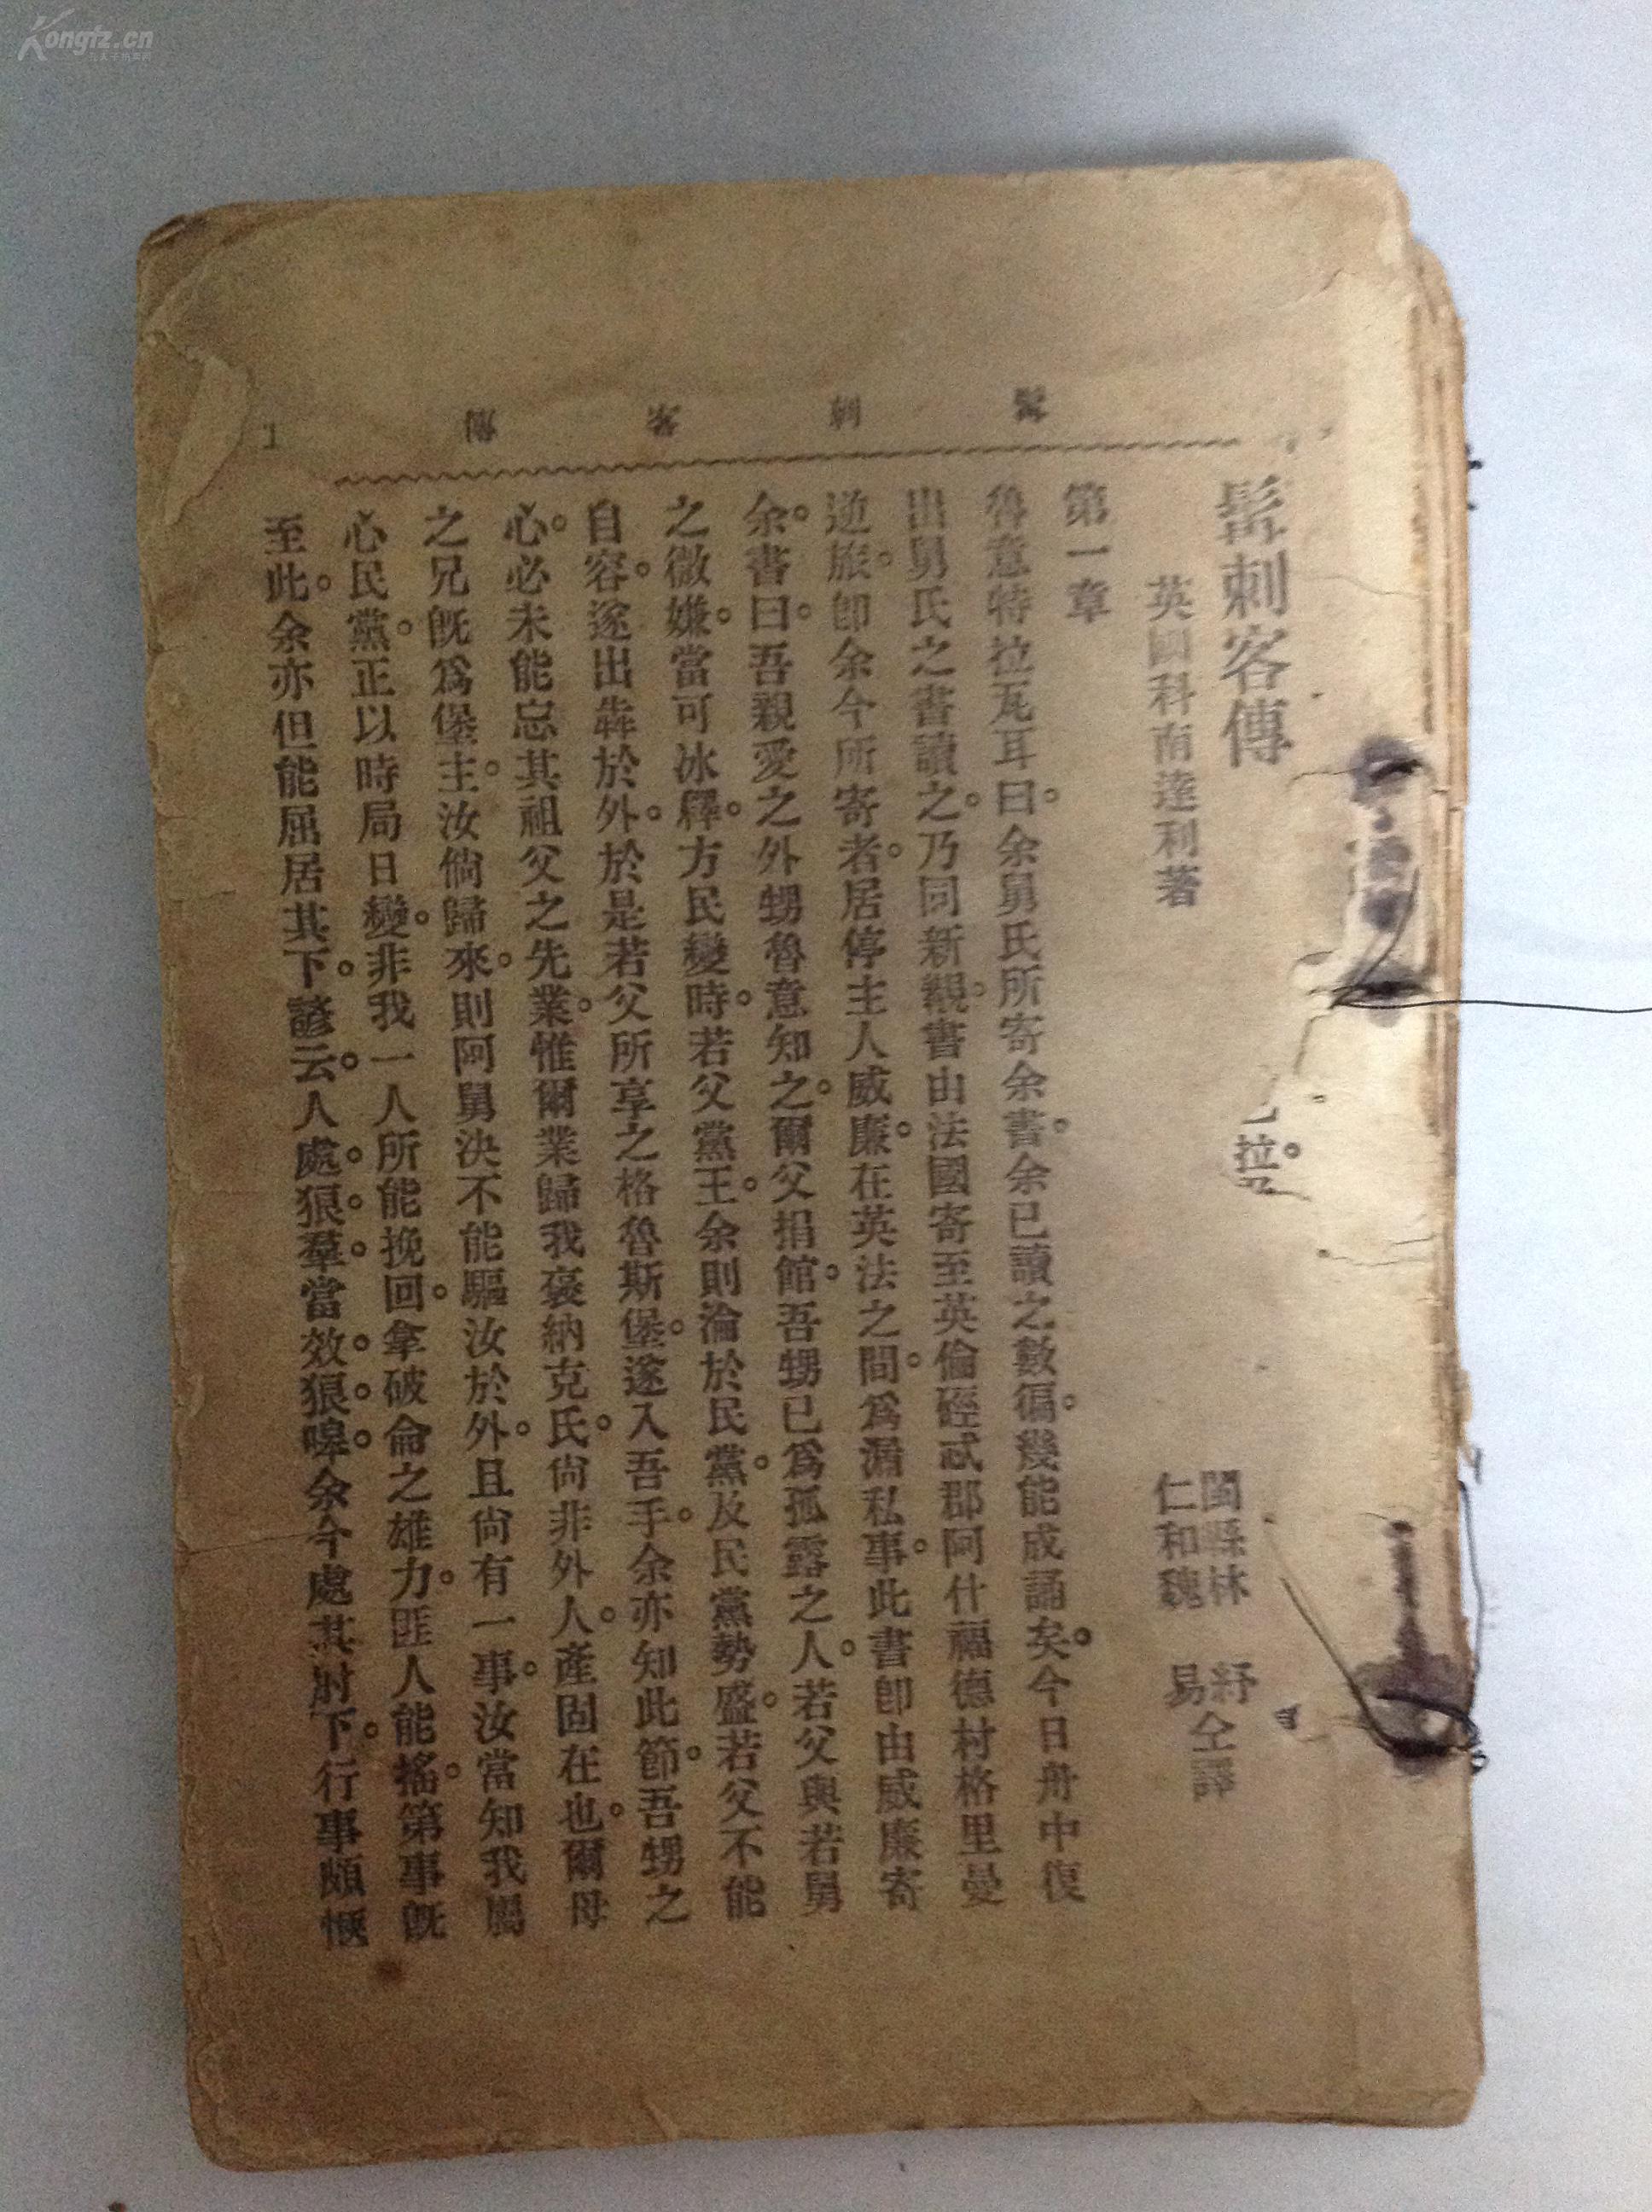 髯刺客傳
英國科南達利著
閩縣林紓
仁和魏易仝譯
第一章
魯意特拉瓦耳曰。余舅氏所寄余書。余已讀之數徧。幾能成誦矣。今日舟中復
出舅氏之書讀之。乃同新覯。書由法國寄至英倫硜忒郡阿什福德村格里曼
逆旅。卽余今所寄者。居停主人威廉。在英法之間。爲漏私事。此書卽由威廉寄
余。書曰。吾親愛之外甥魯意知之。爾父捐館。吾甥已爲孤露之人。若父與若舅
之微嫌。當可冰釋。方民變時。若父黨王。余則淪於民黨。及民黨勢盛。若父不能
自容。遂出犇於外。於是若父所享之格魯斯堡。遂入吾手。余亦知此節。吾甥之
心。必未能忘其祖父之先業。惟爾業歸我褒納克氏。尙非外人。產固在也。爾母
之兄旣爲堡主。汝倘歸來。則阿舅決不能驅汝於外。且尙有一事。汝當知我屬
心民黨。正以時局日變。非我一人所能挽回。拿破侖之雄力。匪人能搖。第事旣
至此。余亦但能屈居其下。諺云。人處狼羣當效狼嘷。余今處其肘下。行事頗愜
髯刺客傳
拉
Kongfz.cn